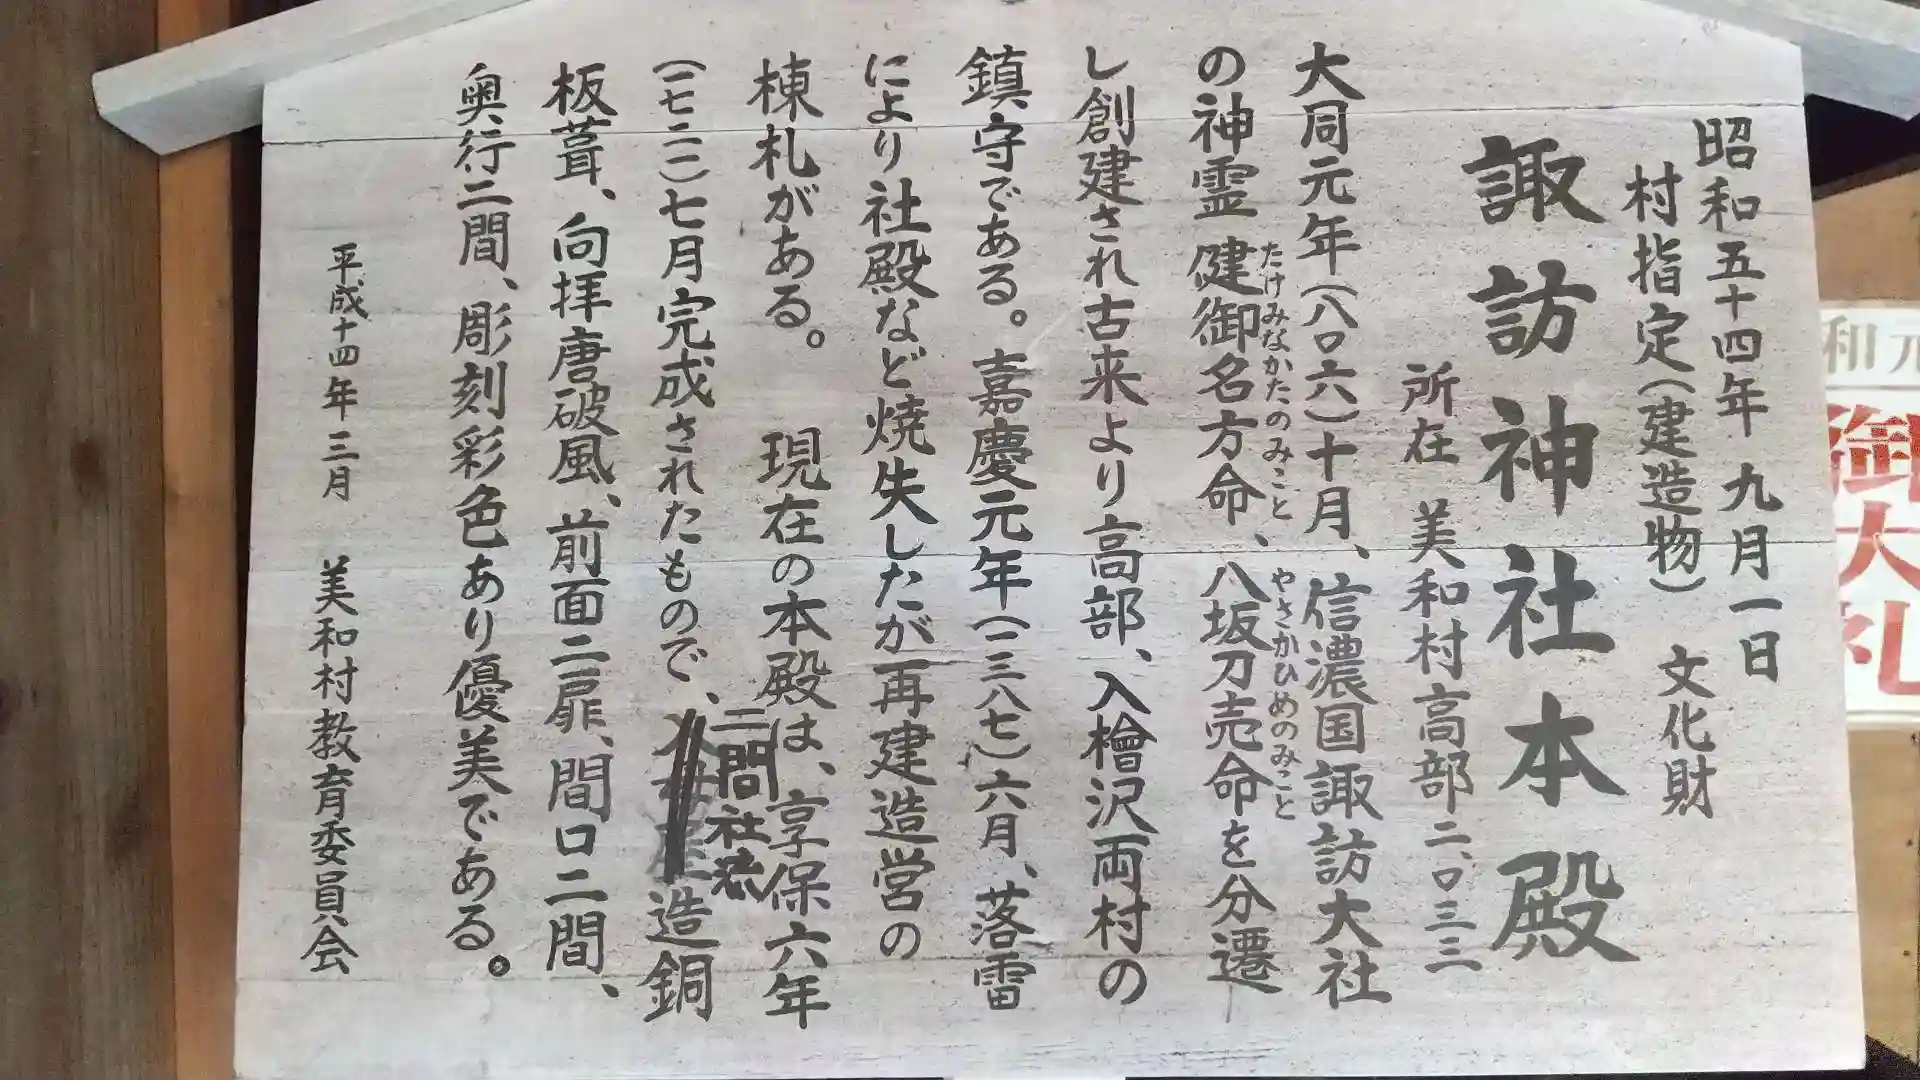 昭和五十四年 九月一日
村指定(建造物) 文化財
諏訪神社本殿
所在 美和村高部二、〇三三
大同元年(八〇六)十月、信濃国諏訪大社
の神霊 健御名方命、八坂刀売命を分遷
たけみなかたのみこと やさかひめのみこと
し創建され古来より高部、入檜沢両村の
鎮守である。嘉慶元年(一三八七)六月、落雷
により社殿など焼失したが再建造営の
棟札がある。 現在の本殿は、享保六年
(一七二一)七月完成されたもので、
二間社流
造銅
板葺、向拝唐破風、前面二扉、間口二間、
奥行二間、彫刻彩色あり優美である。
平成十四年三月 美和村教育委員会
和元
御大札